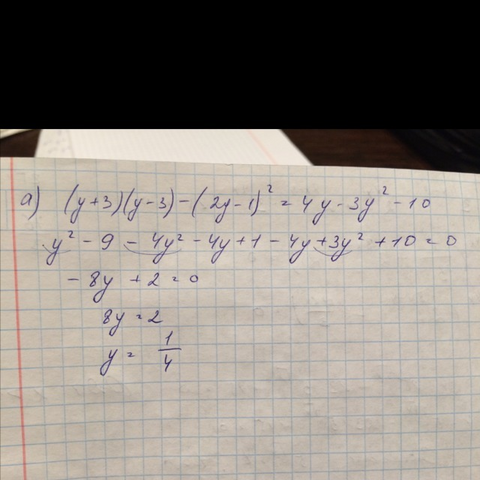 а) (y+3)(y-3)-(2y-1)²=4y-3y²-10
y²-9-4y²-4y+1-4y+3y²+10=0
-8y+2=0
8y=2
y=1/4